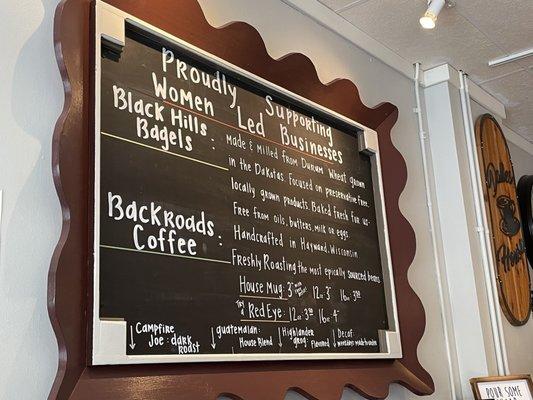 Proudly Supporting
Women Led Businesses
Black Hills
Bagels:
Made & Milled from Durum Wheat grown
in the Dakotas. Focused on preservative free,
locally grown products. Baked fresh for us-
Free from oils, butters, milk or eggs
Backroads
Coffee:
Handcrafted in Hayward, Wisconsin
Freshly Roasting the most epically sourced beans.
House Mug: 3 12oz: 3 16oz: 3
Red Eye: 12oz: 3 16oz: 4
Campfire
Joe: dark
roast
guatemalan:
House Blend
Highlander
grog: Flavored
Decaf:
POUR SOME